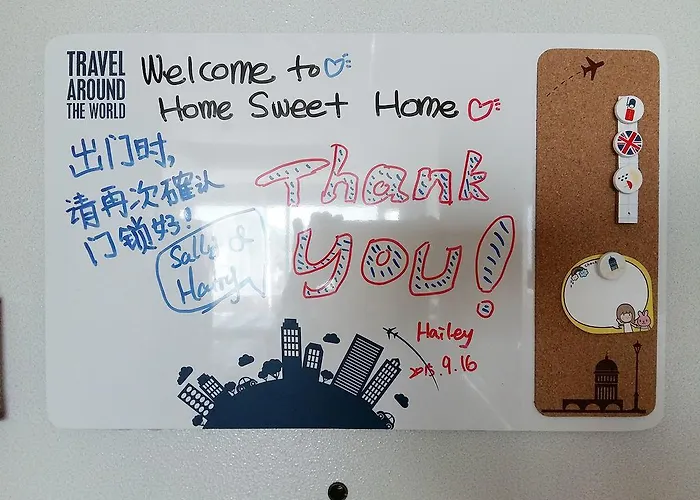 TRAVEL
AROUND
THE WORLD
Welcome to
Home Sweet Home
出门时,
请再次确认
门锁好!
Sally &
Harry
Thank
you!
Hailey
2015.9.16